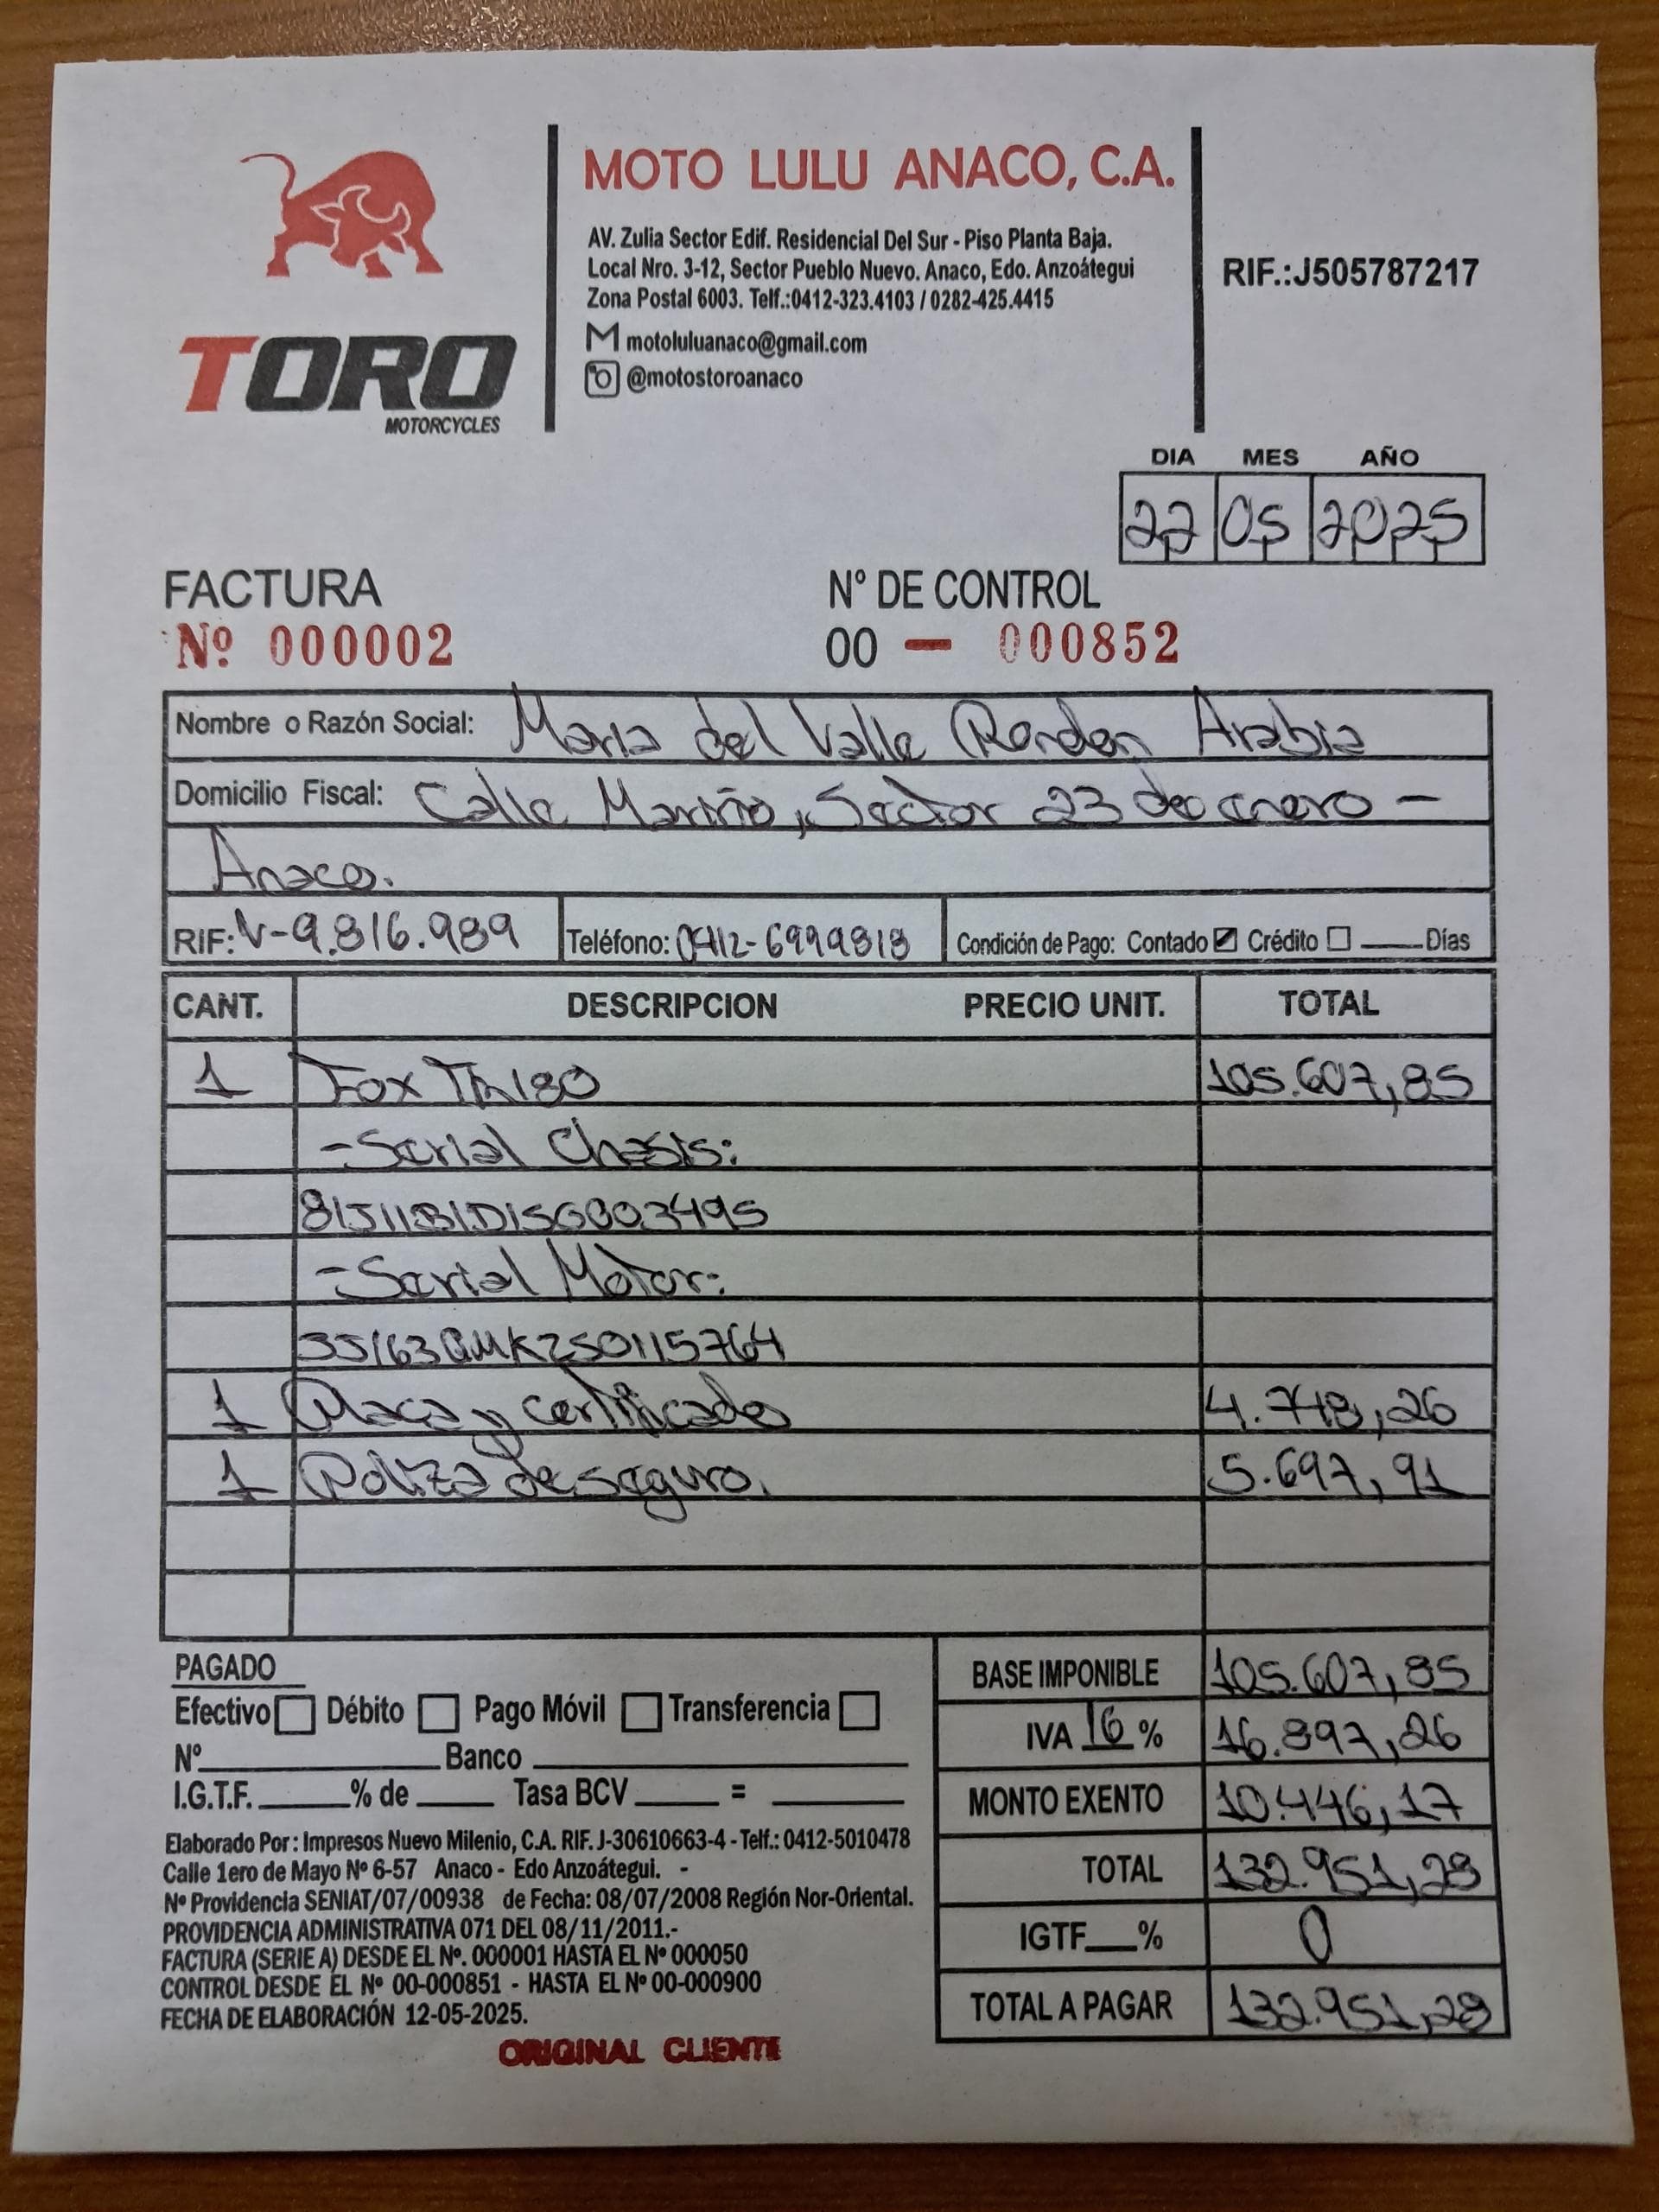 TORO
MOTORCYCLES
MOTO LULU ANACO, C.A.
AV. Zulia Sector Edif. Residencial Del Sur - Piso Planta Baja.
Local Nro. 3-12, Sector Pueblo Nuevo. Anaco, Edo. Anzoátegui
Zona Postal 6003. Telf.:0412-323.4103 / 0282-425.4415
motoluluanaco@gmail.com
@motostoroanaco
RIF.:J505787217
DIA MES AÑO
22 05 2025
FACTURA
Nº 000002
N° DE CONTROL
00 — 000852
Nombre o Razón Social: Maria del Valle Rondon Arabia
Domicilio Fiscal: Calle Mariño, Sector 23 de enero -
Anaco.
RIF: V-9.816.989 Teléfono: 0412-6999818 Condición de Pago: Contado Crédito Días
CANT. DESCRIPCION PRECIO UNIT. TOTAL
1 Fox TR180 105.607,85
-Serial Chasis:
-Serial Motor:
1 Placa y certificado 4.748,26
1 Poliza de seguro. 5.697,91
PAGADO
Efectivo Débito Pago Móvil Transferencia
N° Banco
I.G.T.F. % de Tasa BCV =
BASE IMPONIBLE 105.607,85
IVA 16 % 16.897,26
MONTO EXENTO 10.446,17
TOTAL 132.951,28
IGTF % 0
TOTAL A PAGAR 132.951,28
Elaborado Por: Impresos Nuevo Milenio, C.A. RIF. J-30610663-4 - Telf.: 0412-5010478
Calle 1ero de Mayo Nº 6-57 Anaco - Edo Anzoátegui. -
Nº Providencia SENIAT/07/00938 de Fecha: 08/07/2008 Región Nor-Oriental.
PROVIDENCIA ADMINISTRATIVA 071 DEL 08/11/2011.-
FACTURA (SERIE A) DESDE EL Nº. 000001 HASTA EL Nº 000050
CONTROL DESDE EL Nº 00-000851 - HASTA EL Nº 00-000900
FECHA DE ELABORACIÓN 12-05-2025.
ORIGINAL CLIENTE